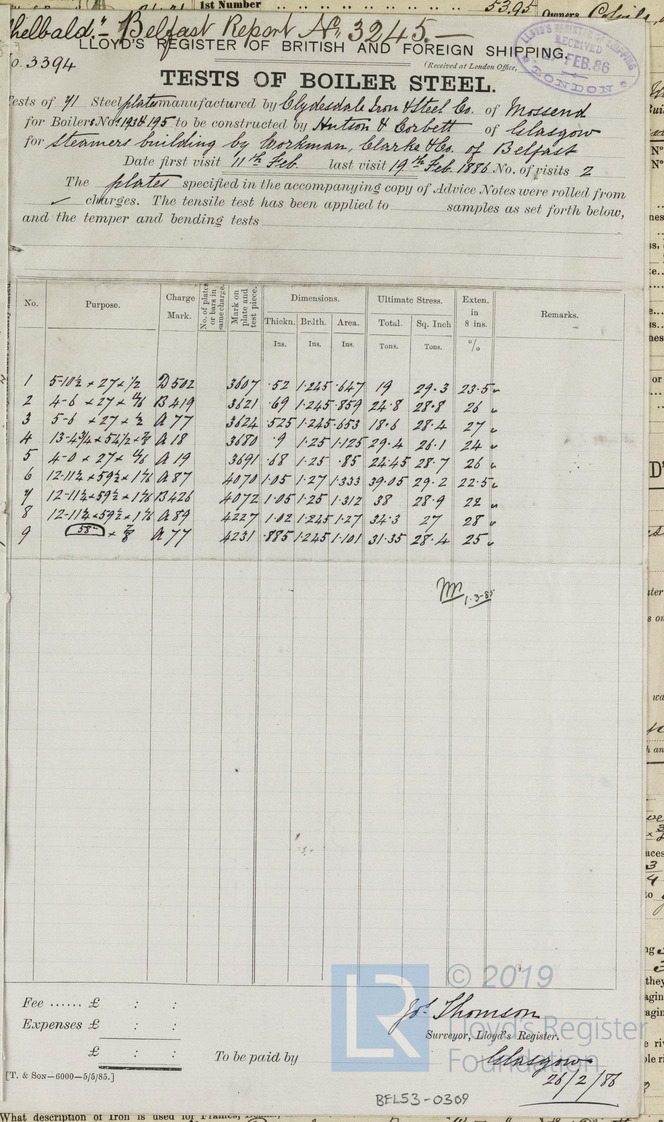 1st Number 5395 Owners
helbald." Belfast Report No. 3245.—
LLOYD'S REGISTER OF BRITISH AND FOREIGN SHIPPING.
No. 3394
(Received at London Office,
LLOYD'S REGISTER OF SHIPPING
RECEIVED
FEB. 86
LONDON
TESTS OF BOILER STEEL.
Tests of 71 Steel plates manufactured by Clydesdale Iron & Steel Co. of Mossend
for Boilers Nos 193 & 195 to be constructed by Hutson & Corbett of Glasgow
for steamers building by Workman, Clarke & Co. of Belfast
Date first visit 11th Feb. last visit 19th Feb. 1886 No. of visits 2
The plates specified in the accompanying copy of Advice Notes were rolled from
charges. The tensile test has been applied to samples as set forth below,
and the temper and bending tests
No. Purpose. Charge Mark. No. of plates or bars in same charge. Mark on plate and test piece. Dimensions. Ultimate Stress. Exten. in 8 ins. Remarks.
Thickn. Br.lth. Area. Total. Sq. Inch
Ins. Ins. Ins. Tons. Tons. %
1 5-10½ × 27 × ½ D 502 3607 .52 1.245 .647 19 29.3 23.5 "
2 4-6 × 27 × 11/16 B 419 3621 .69 1.245 .859 24.8 28.8 26 "
3 5-6 × 27 × ½ A 77 3624 .525 1.245 .653 18.6 28.4 27 "
4 13-4¾ × 54½ × ⅞ A 18 3680 .9 1.25 1.125 29.4 26.1 24 "
5 4-0 × 27 × 11/16 A 19 3691 .68 1.25 .85 24.45 28.7 26 "
6 12-11½ × 59½ × 1 1/16 A 87 4070 1.05 1.27 1.333 39.05 29.2 22.5 "
7 12-11½ × 59½ × 1 1/16 B 426 4072 1.05 1.25 1.312 38 28.9 22 "
8 12-11½ × 59½ × 1 1/16 A 89 4227 1.02 1.245 1.27 34.3 27 28 "
9 58" × ⅞ A 77 4231 .885 1.245 1.101 31.35 28.4 25 "
1.3.86
© 2019
LR
Lloyd's Register
Foundation
Fee ...... £ : :
Expenses £ : :
£ : :
To be paid by
Jos. Thomson
Surveyor, Lloyd's Register.
Glasgow
26/2/86
[T. & SON—6000—5/5/85.]
BEL53-0309
What description of Iron is used for Frames,